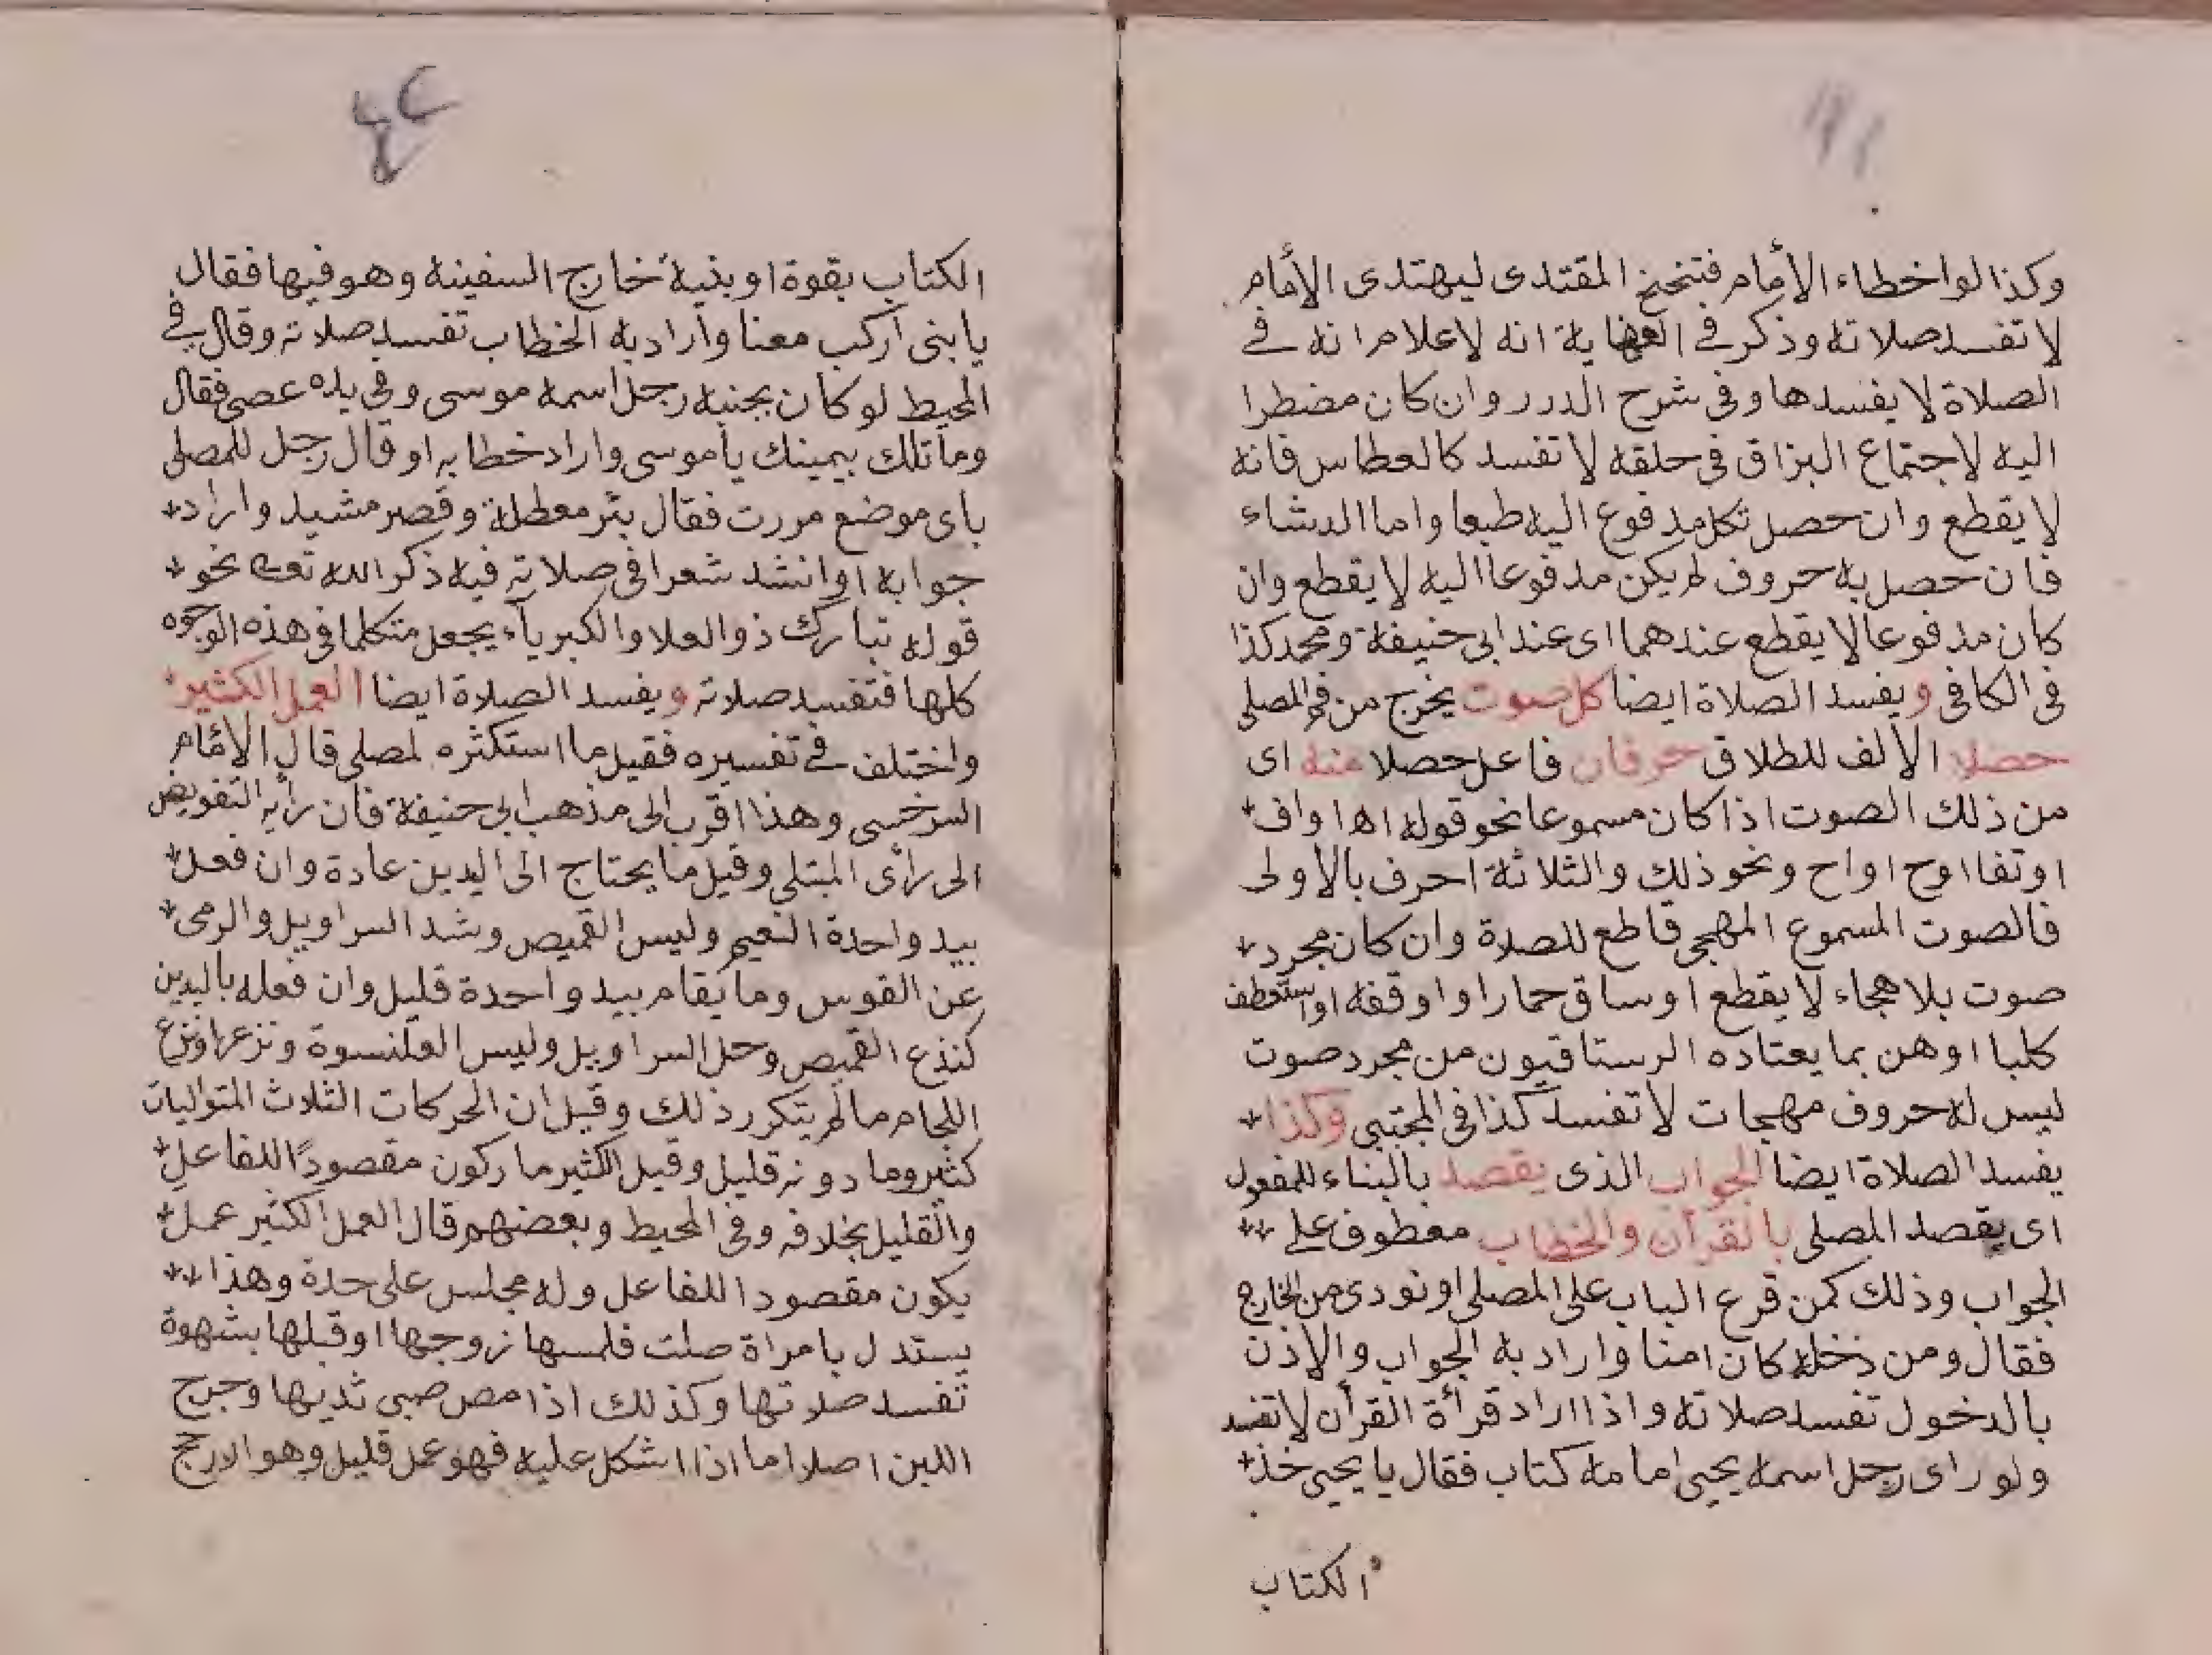 وكذا لو اخطاء الأمام فتنحنح المقتدى ليهتدى الأمام
لا تفسد صلاته وذكر في الغاية انه لاعلام انه في
الصلاة لا يفسدها وفى شرح الدرر وان كان مضطرا
اليه لاجتماع البزاق فى حلقه لا تفسد كالعطاس فانه
لا يقطع وان حصل تكلم مدفوع اليه طبعا واما الدشاء
فان حصل به حروف لم يكن مدفوعا اليه لا يقطع وان
كان مدفوعا لا يقطع عندهما اى عند ابى حنيفة ومحمد كذا
فى الكافى ويفسد الصلاة ايضا كل صوت يخرج من فم المصلى
حصلا الالف للطلاق حرفان فاعل حصلا منه اى
من ذلك الصوت اذا كان مسموعا نحو قوله اه او اف
او تفا اوح او اح ونحو ذلك والثلاثة احرف بالاولى
فالصوت المسموع المهجى قاطع للصلاة وان كان مجرد
صوت بلا هجاء لا يقطع او ساق حمارا او اوقفه او استعطف
كلبا او هن بما يعتاده الرستاقيون من مجرد صوت
ليس له حروف مهجات لا تفسد كذا فى المجتبى وكذا
يفسد الصلاة ايضا الجواب الذى يقصد بالبناء للمفعول
اى يقصد المصلى بالقرآن والخطاب معطوف على
الجواب وذلك كمن قرع الباب على المصلى او نودى من الخارج
فقال ومن دخله كان امنا واراد به الجواب والاذن
بالدخول تفسد صلاته واذا اراد قرأة القرأن لا تفسد
ولو راى رجل اسمه يحيى امامه كتاب فقال يا يحيى خذ
الكتاب
الكتاب بقوة او بنيه خارج السفينة وهو فيها فقال
يا بنى اركب معنا واراد به الخطاب تفسد صلاته وقال في
المحيط لو كان بجنبه رجل اسمه موسى وفى يده عصى فقال
وما تلك بيمينك يا موسى واراد خطابه او قال رجل للمصلى
باى موضع مررت فقال بئر معطلة وقصر مشيد واراد
جوابه او انشد شعرا فى صلاته فيه ذكر الله تعه نحو
قوله تبارك ذو العلا والكبرياء يجعل متكلما فى هذه الوجوه
كلها فتفسد صلاته ويفسد الصلاة ايضا العمل الكثير
واختلف في تفسيره فقيل ما استكثره لمصلى قال الامام
السرخسى وهذا اقرب الى مذهب ابى حنيفة فان رأيه التفويض
الى رأى المبتلى وقيل ما يحتاج الى اليدين عادة وان فعل
بيد واحدة التعيم وليس القميص وشد السراويل والرمى
عن القوس وما يقام بيد واحدة قليل وان فعله باليدين
كنذع القميص وحل السراويل وليس القلنسوة ونزعها ونزع
اللجام ما لم يتكرر ذلك وقيل ان الحركات الثلاث المتواليات
كثير وما دونه قليل وقيل الكثير ما ركون مقصودًا للفاعل
والقليل بخلافه وفى المحيط وبعضهم قال العمل الكثير عمل
يكون مقصودا للفاعل وله مجلس على حدة وهذا
يستدل بامراة صلت فلمسها زوجها او قبلها بشهوة
تفسد صلاتها وكذلك اذا مص صبى ثديها وخرج
اللبن اصلا اما اذا اشكل عليه فهو عمل قليل وهو الارجح